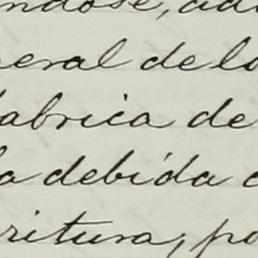 ndose, ad
neral de lo
fabrica de
la debida c
ritura, po